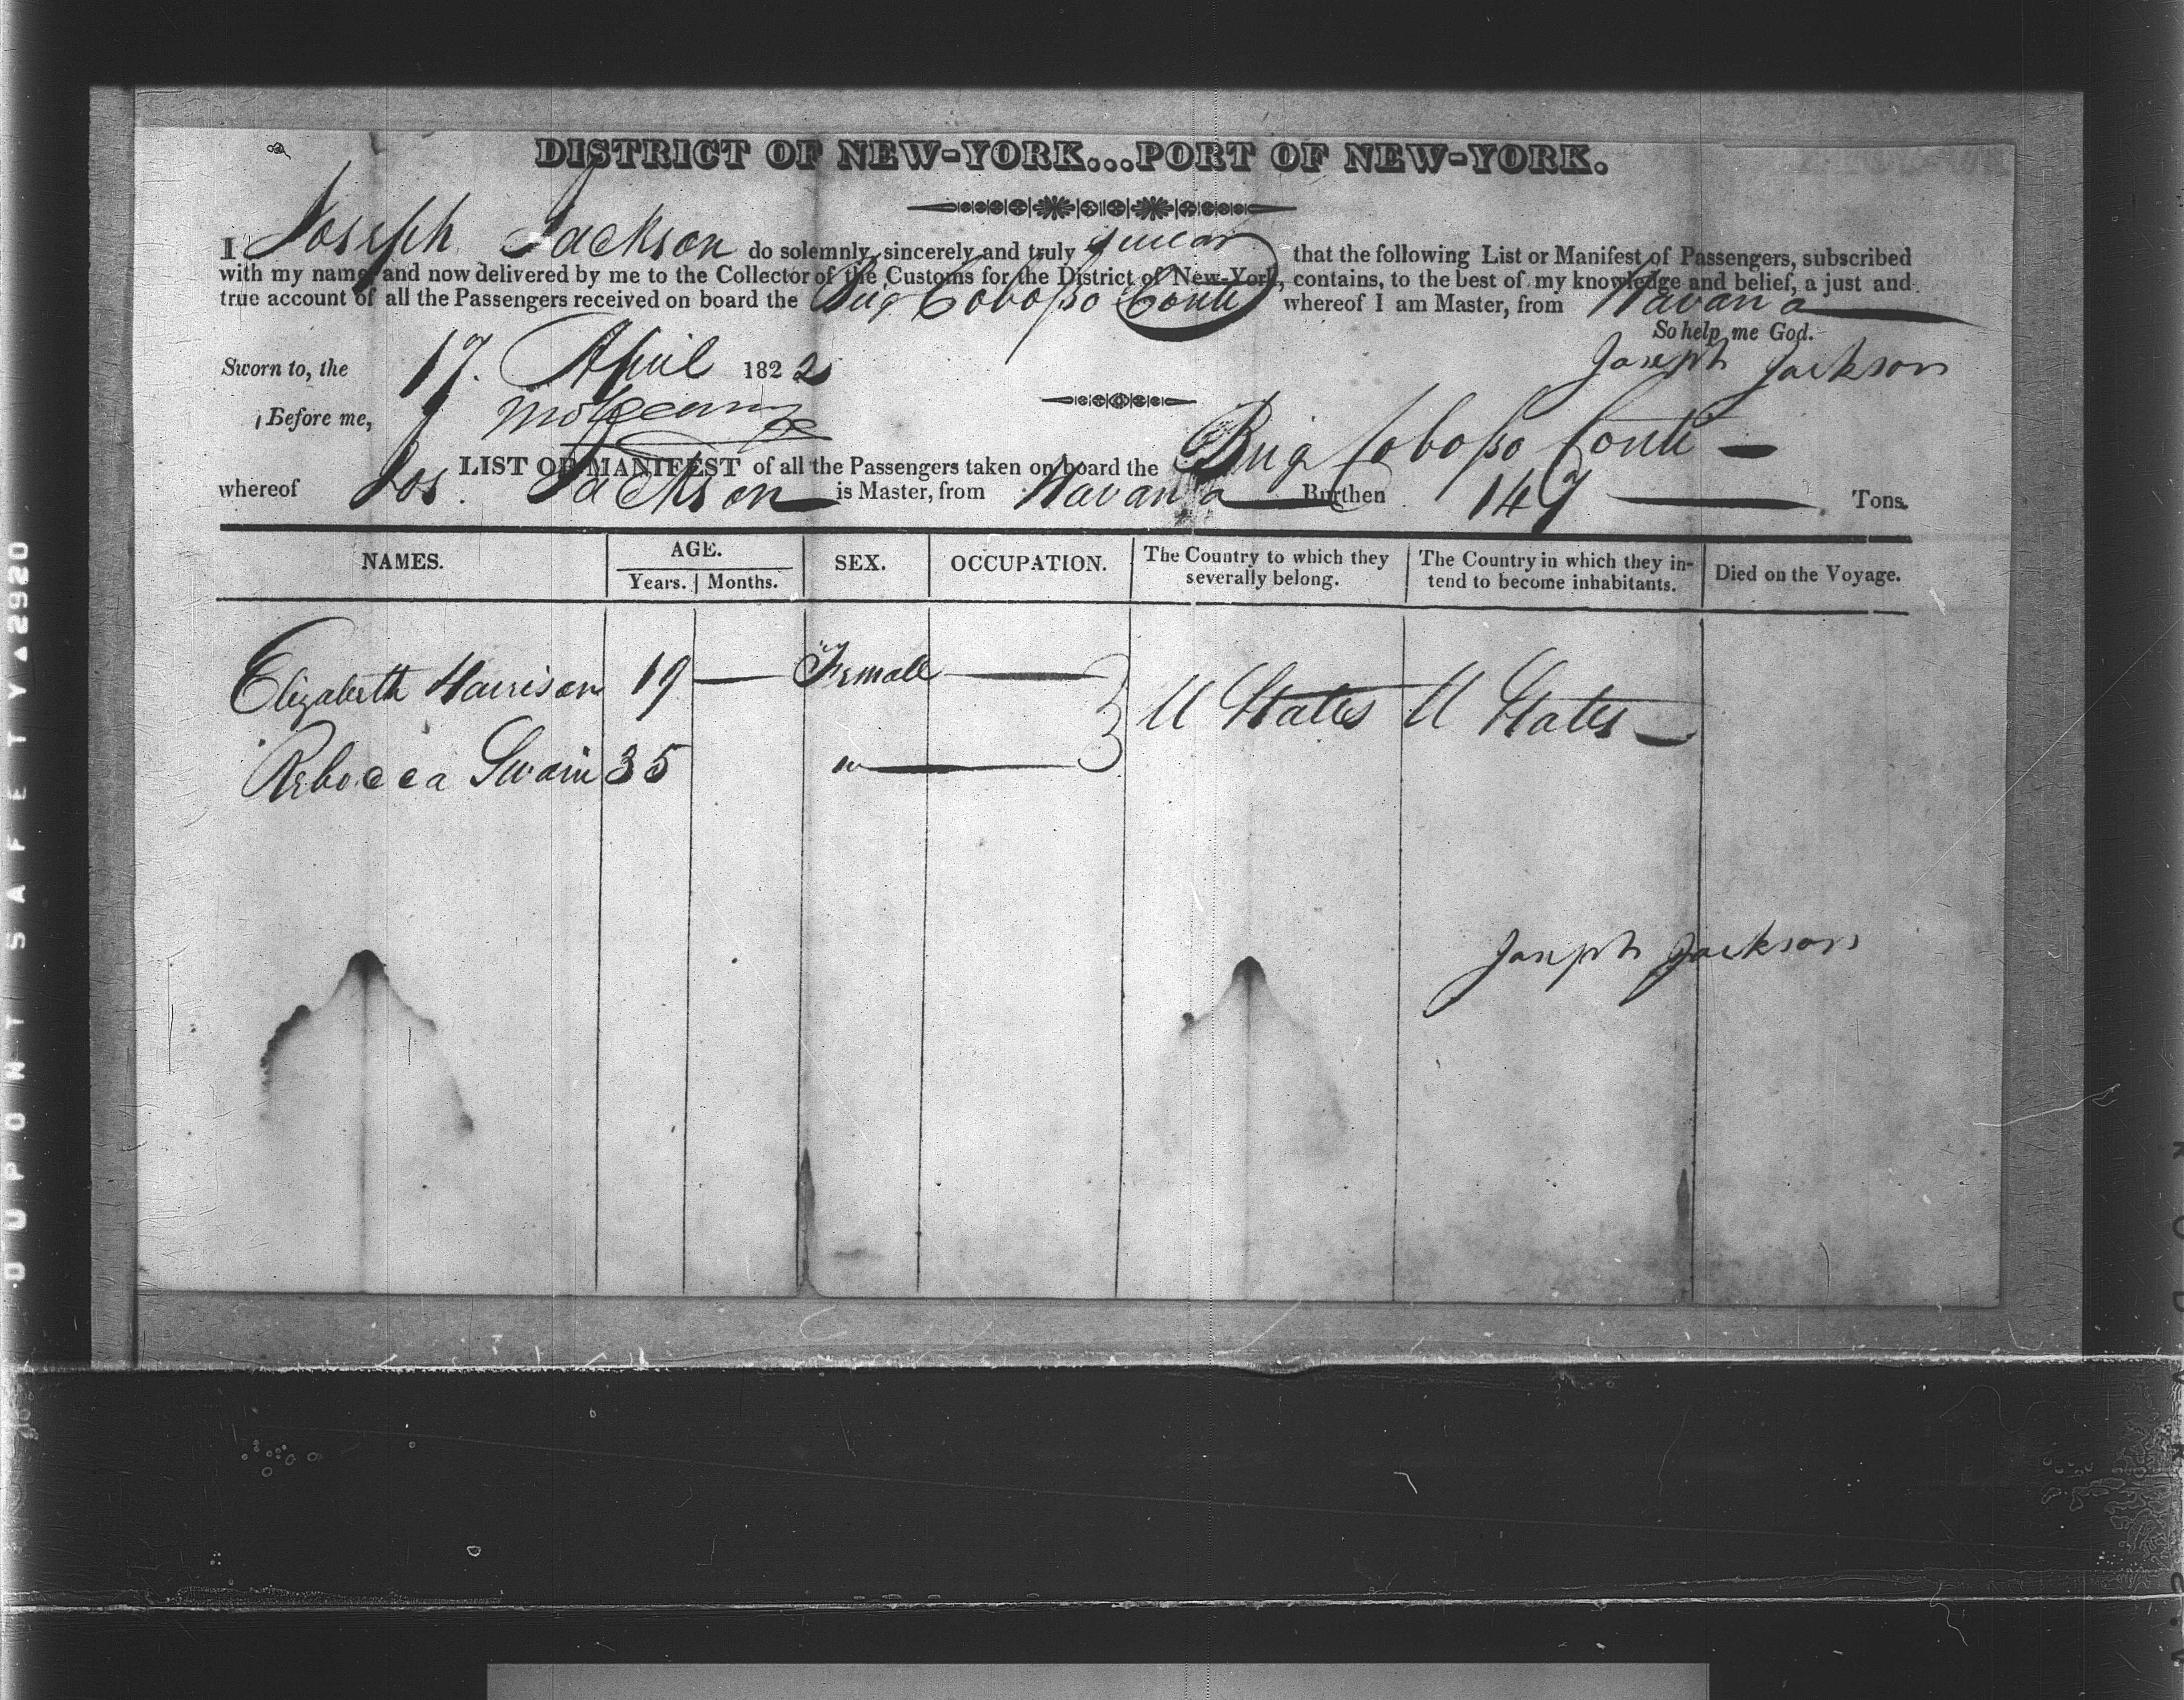 DISTRICT OF NEW-YORK...PORT OF NEW-YORK.
I Joseph Jackson do solemnly, sincerely and truly swear that the following List or Manifest of Passengers, subscribed
with my name, and now delivered by me to the Collector of the Customs for the District of New-York, contains, to the best of my knowledge and belief, a just and
true account of all the Passengers received on board the Brig Cobosso Conti whereof I am Master, from Havana
So help me God.
Sworn to, the 17. April 1822 Joseph Jackson
Before me,
LIST OR MANIFEST of all the Passengers taken on board the Brig Cobosso Conti
whereof Jos. Jackson is Master, from Havana Burthen 147 Tons.
NAMES. AGE. SEX. OCCUPATION. The Country to which they severally belong. The Country in which they intend to become inhabitants. Died on the Voyage.
Years. Months.
Elizabeth Harrison 19 — Female — U States U States
Rebecca Swain 35 "
Joseph Jackson
SAFETY▲2920